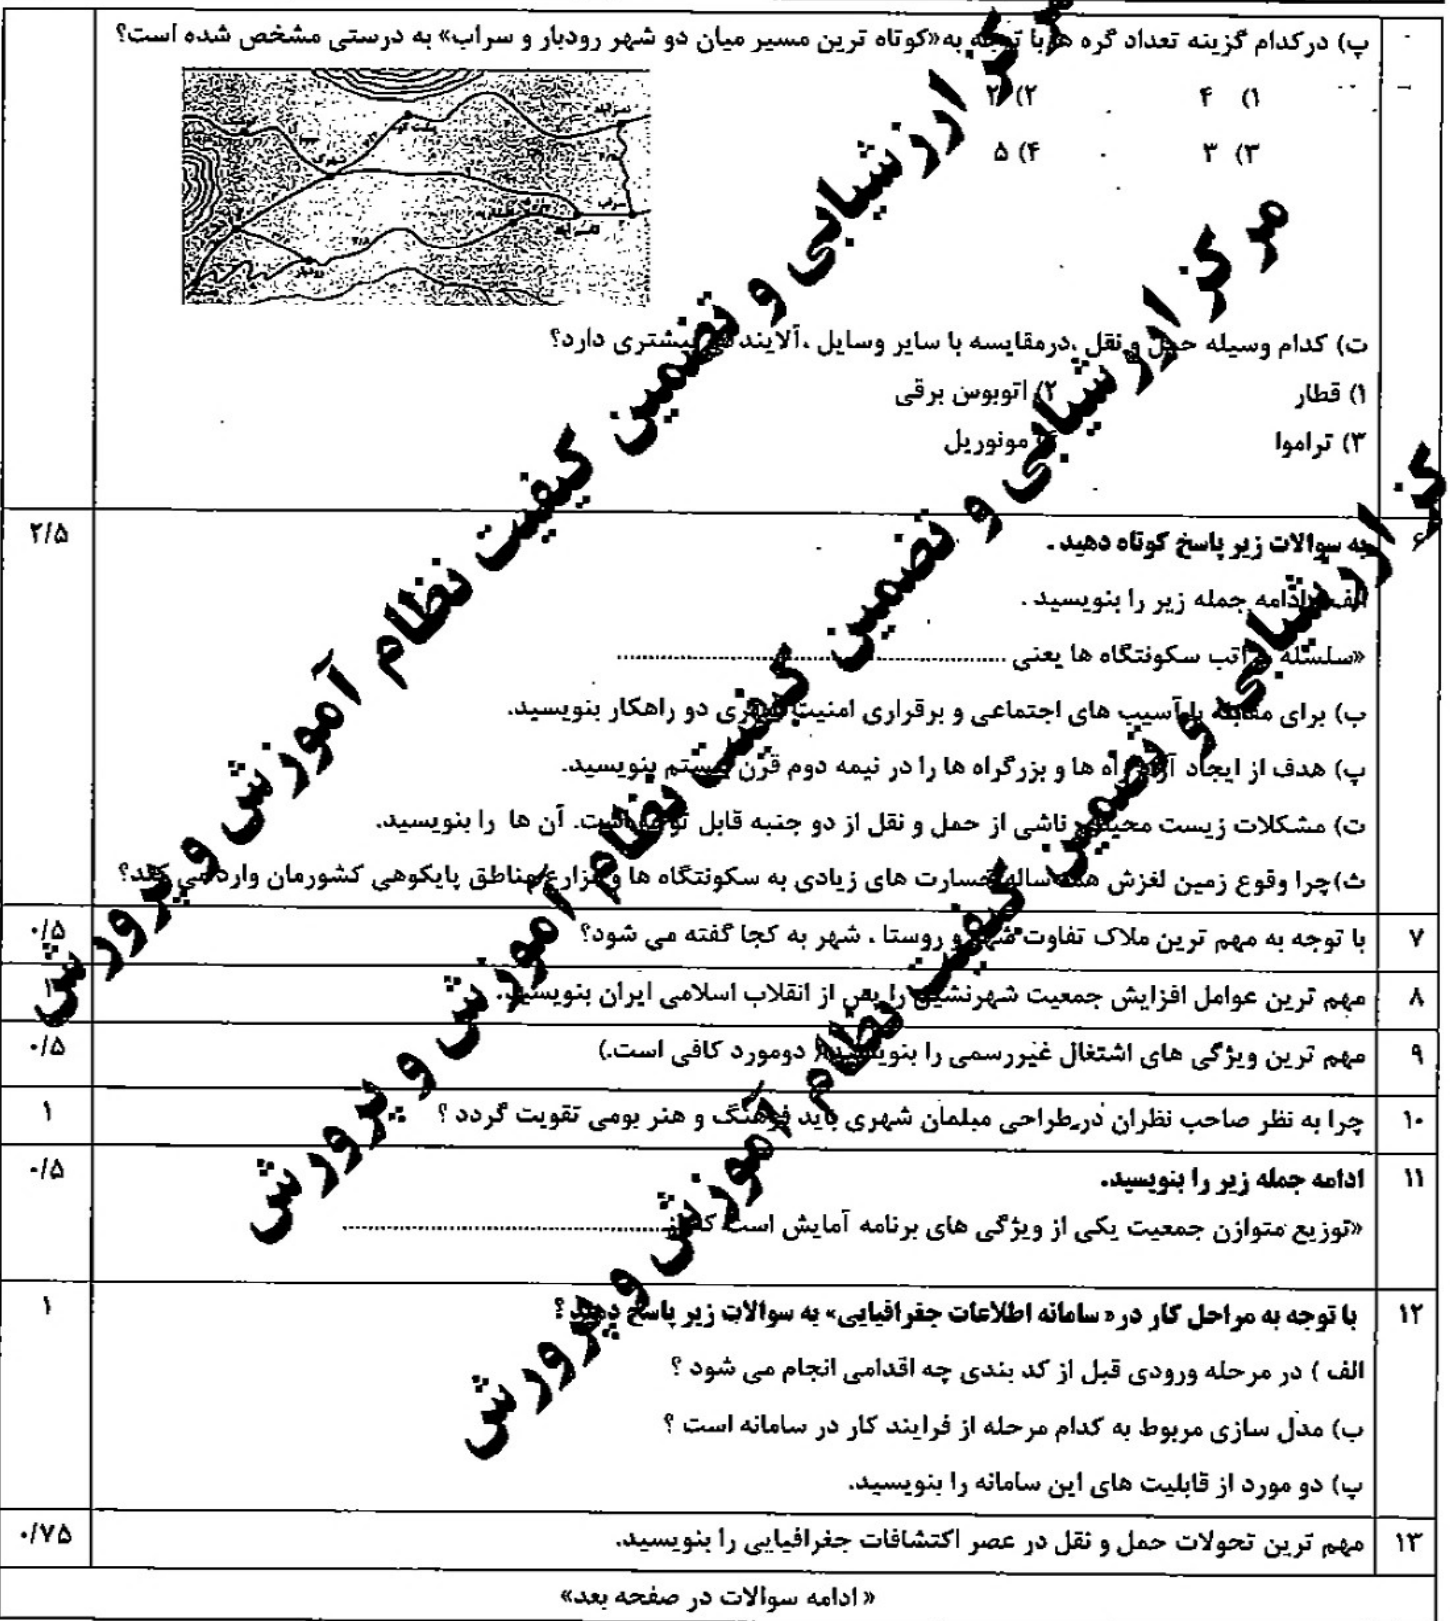 پ) درکدام گزینه تعداد گره ها با توجه به«کوتاه ترین مسیر میان دو شهر رودبار و سراب» به درستی مشخص شده است؟
۱) ۴ ۲) ۲
۳) ۳ ۴) ۵
پشت کوه
نصرآباد
سراب
قاسم آباد
رودبار
ت) کدام وسیله حمل و نقل ،درمقایسه با سایر وسایل ،آلایندگی بیشتری دارد؟
۱) قطار ۲) اتوبوس برقی
۳) تراموا ۴) مونوریل
۶ به سوالات زیر پاسخ کوتاه دهید . ۲/۵
الف) ادامه جمله زیر را بنویسید .
«سلسله مراتب سکونتگاه ها یعنی ........................................
ب) برای مقابله با آسیب های اجتماعی و برقراری امنیت شهری دو راهکار بنویسید.
پ) هدف از ایجاد آزادراه ها و بزرگراه ها را در نیمه دوم قرن بیستم بنویسید.
ت) مشکلات زیست محیطی ناشی از حمل و نقل از دو جنبه قابل توجه است. آن ها را بنویسید.
ث)چرا وقوع زمین لغزش همه ساله خسارت های زیادی به سکونتگاه ها و مزارع مناطق پایکوهی کشورمان وارد می کند؟
۷ با توجه به مهم ترین ملاک تفاوت شهر و روستا ، شهر به کجا گفته می شود؟ ۰/۵
۸ مهم ترین عوامل افزایش جمعیت شهرنشین را پس از انقلاب اسلامی ایران بنویسید. ۱
۹ مهم ترین ویژگی های اشتغال غیررسمی را بنویسید.( دومورد کافی است.) ۰/۵
۱۰ چرا به نظر صاحب نظران در طراحی مبلمان شهری باید فرهنگ و هنر بومی تقویت گردد ؟ ۱
۱۱ ادامه جمله زیر را بنویسید. ۰/۵
«توزیع متوازن جمعیت یکی از ویژگی های برنامه آمایش است که ........................................
۱۲ با توجه به مراحل کار در « سامانه اطلاعات جغرافیایی» به سوالات زیر پاسخ دهید ؟ ۱
الف ) در مرحله ورودی قبل از کد بندی چه اقدامی انجام می شود ؟
ب) مدل سازی مربوط به کدام مرحله از فرایند کار در سامانه است ؟
پ) دو مورد از قابلیت های این سامانه را بنویسید.
۱۳ مهم ترین تحولات حمل و نقل در عصر اکتشافات جغرافیایی را بنویسید. ۰/۷۵
« ادامه سوالات در صفحه بعد»
مرکز ارزشیابی و تضمین کیفیت نظام آموزش و پرورش
مرکز ارزشیابی و تضمین کیفیت نظام آموزش و پرورش
مرکز ارزشیابی و تضمین کیفیت نظام آموزش و پرورش